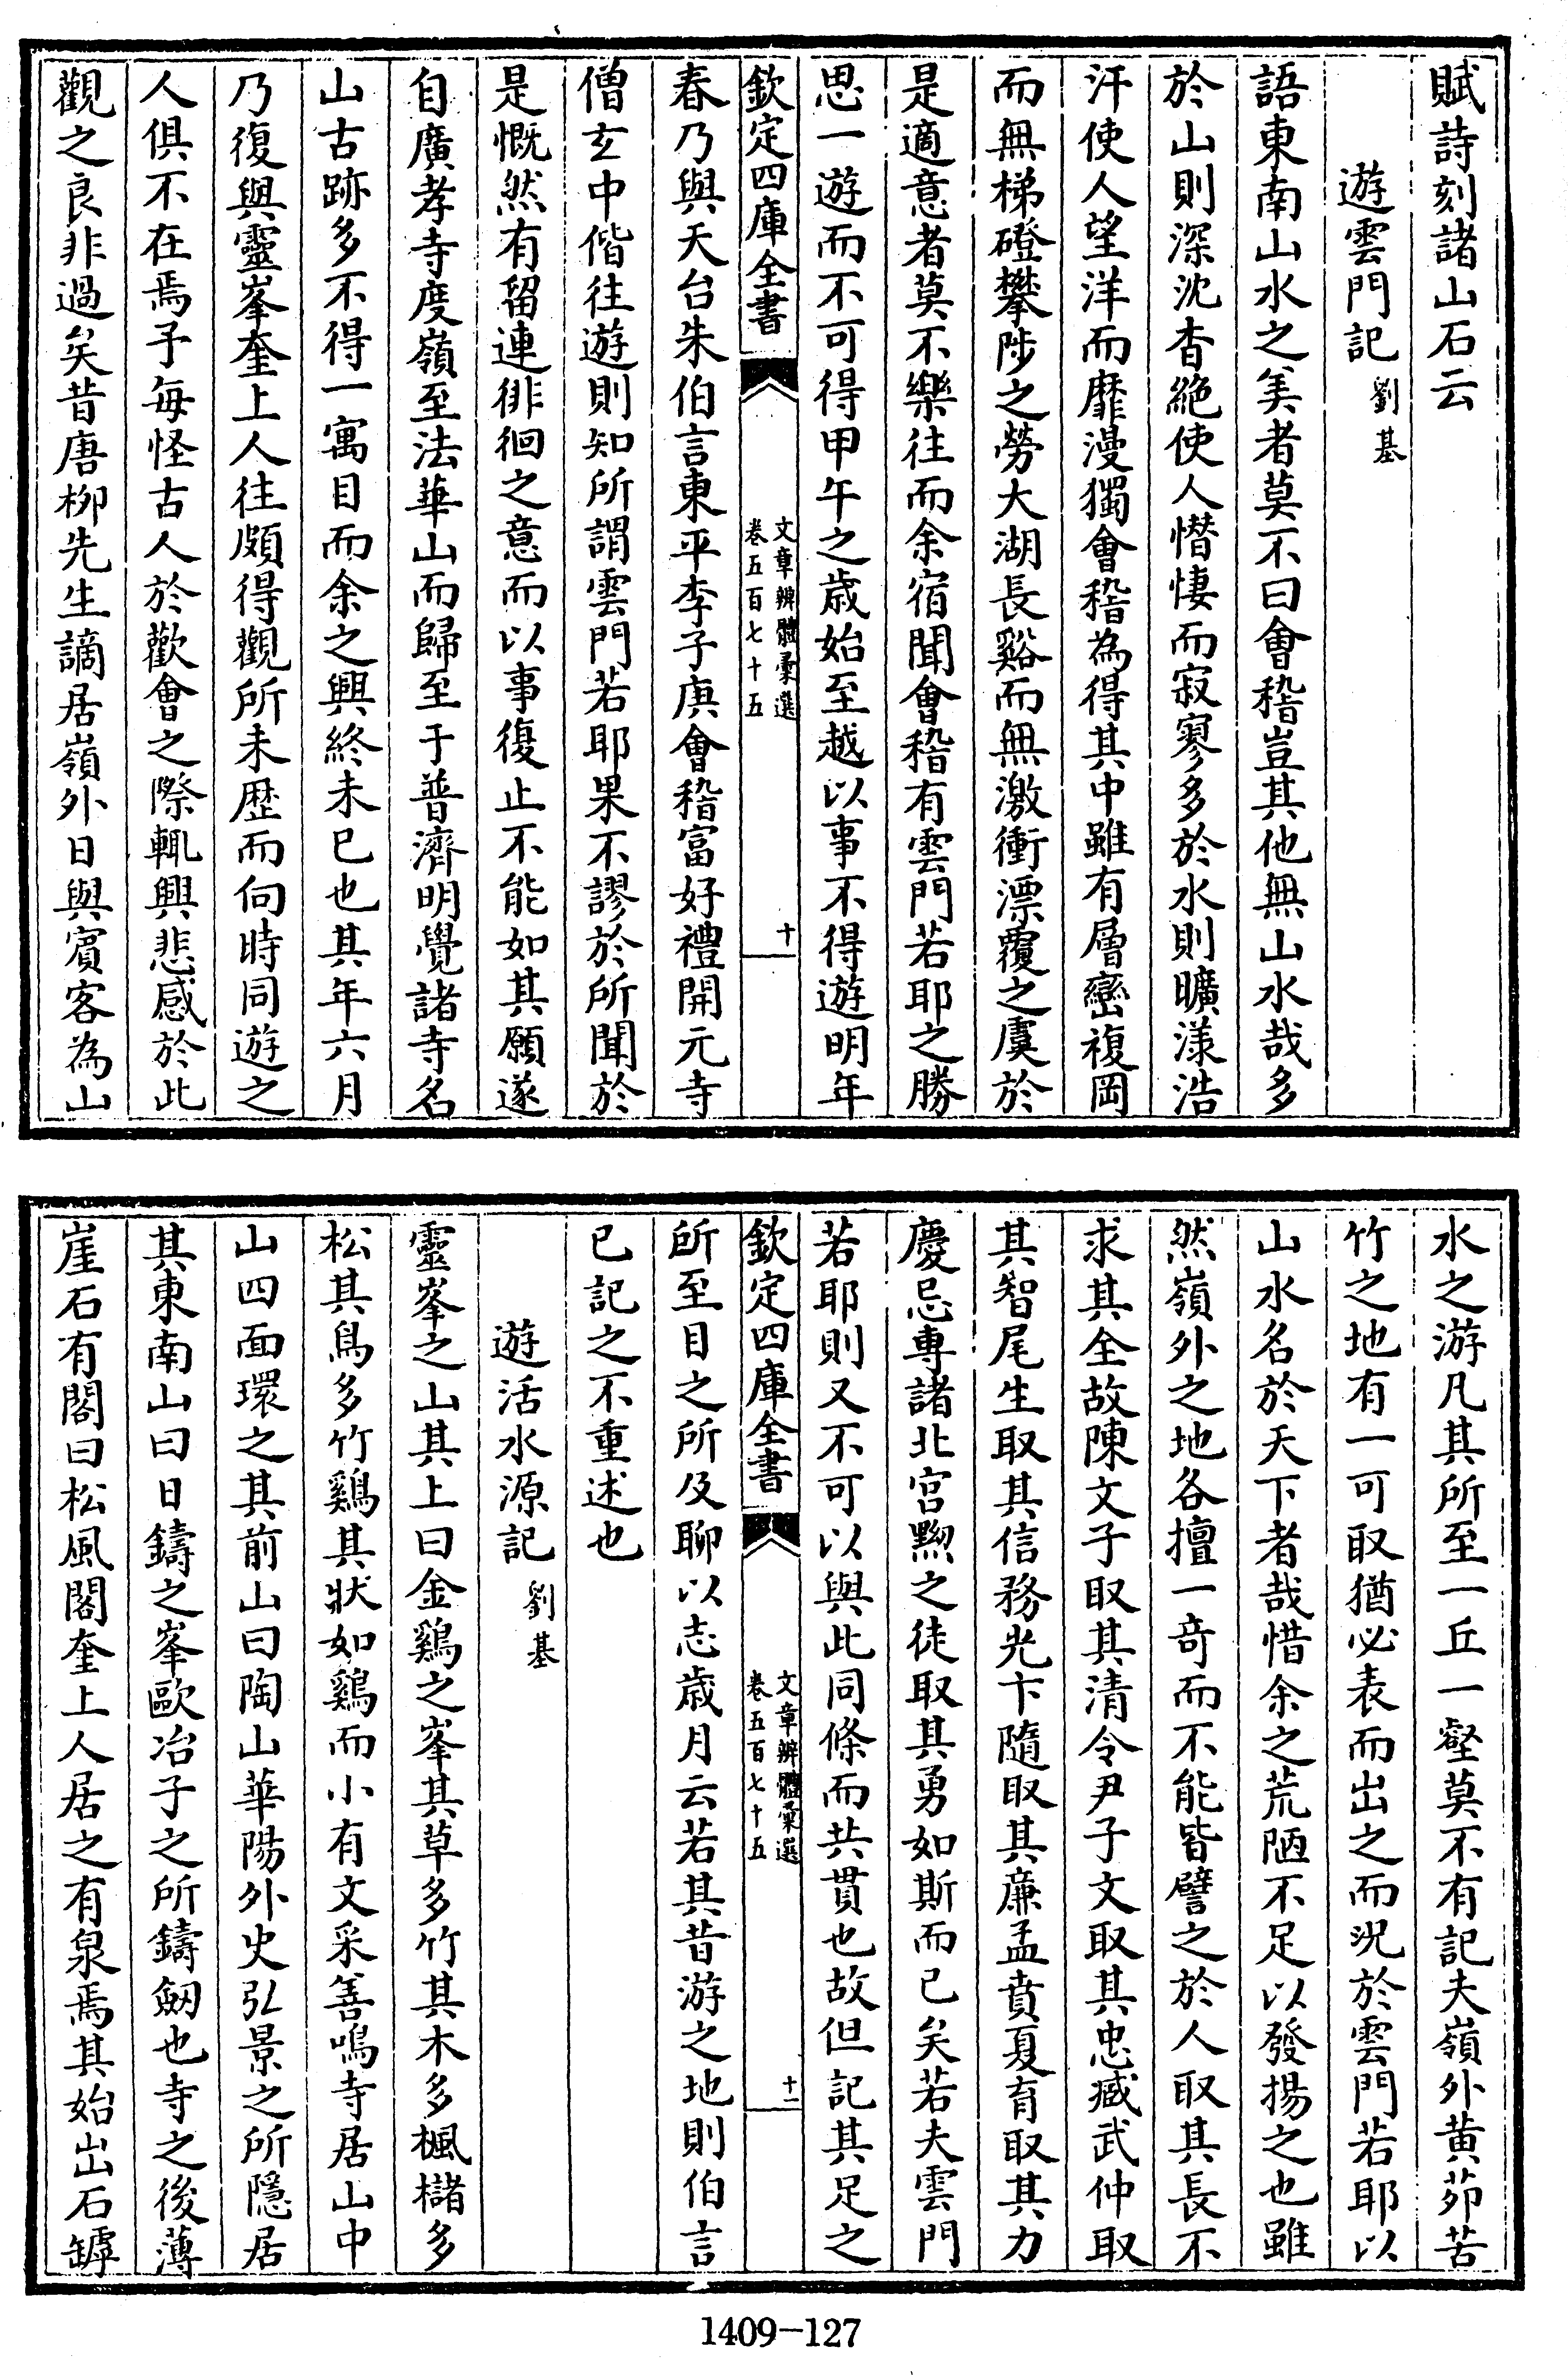 賦詩刻諸山石云
遊雲門記 劉基
語東南山水之美者莫不曰會稽豈其他無山水哉多
於山則深沈杳絶使人憯悽而寂寥多於水則曠漾浩
汗使人望洋而靡漫獨會稽為得其中雖有層巒複岡
而無梯磴攀陟之勞大湖長谿而無激衝漂覆之虞於
是適意者莫不樂往而余宿聞會稽有雲門若耶之勝
思一遊而不可得甲午之歳始至越以事不得遊明年
欽定四庫全書 文章辨體彙選 卷五百七十五 十
春乃與天台朱伯言東平李子庚會稽富好禮開元寺
僧玄中偕往遊則知所謂雲門若耶果不謬於所聞於
是慨然有留連徘徊之意而以事復止不能如其願遂
自廣孝寺度嶺至法華山而歸至于普濟明覺諸寺名
山古跡多不得一寓目而余之興終未已也其年六月
乃復與靈峯奎上人往頗得觀所未歴而向時同遊之
人俱不在焉予每怪古人於歡會之際輒興悲感於此
觀之良非過矣昔唐柳先生謫居嶺外日與賓客為山
水之游凡其所至一丘一壑莫不有記夫嶺外黄茆苦
竹之地有一可取猶必表而出之而況於雲門若耶以
山水名於天下者哉惜余之荒陋不足以發揚之也雖
然嶺外之地各擅一奇而不能皆譬之於人取其長不
求其全故陳文子取其清令尹子文取其忠臧武仲取
其智尾生取其信務光卞隨取其廉孟賁夏育取其力
慶忌專諸北宫黝之徒取其勇如斯而已矣若夫雲門
若耶則又不可以與此同條而共貫也故但記其足之
欽定四庫全書 文章辨體彙選 卷五百七十五 十一
所至目之所及聊以志歳月云若其昔游之地則伯言
已記之不重述也
遊活水源記 劉基
靈峯之山其上曰金鷄之峯其草多竹其木多楓櫧多
松其鳥多竹鷄其狀如鷄而小有文采善鳴寺居山中
山四面環之其前山曰陶山華陽外史弘景之所隱居
其東南山曰日鑄之峯歐冶子之所鑄劒也寺之後薄
崖石有閣曰松風閣奎上人居之有泉焉其始出石罅
1409-127